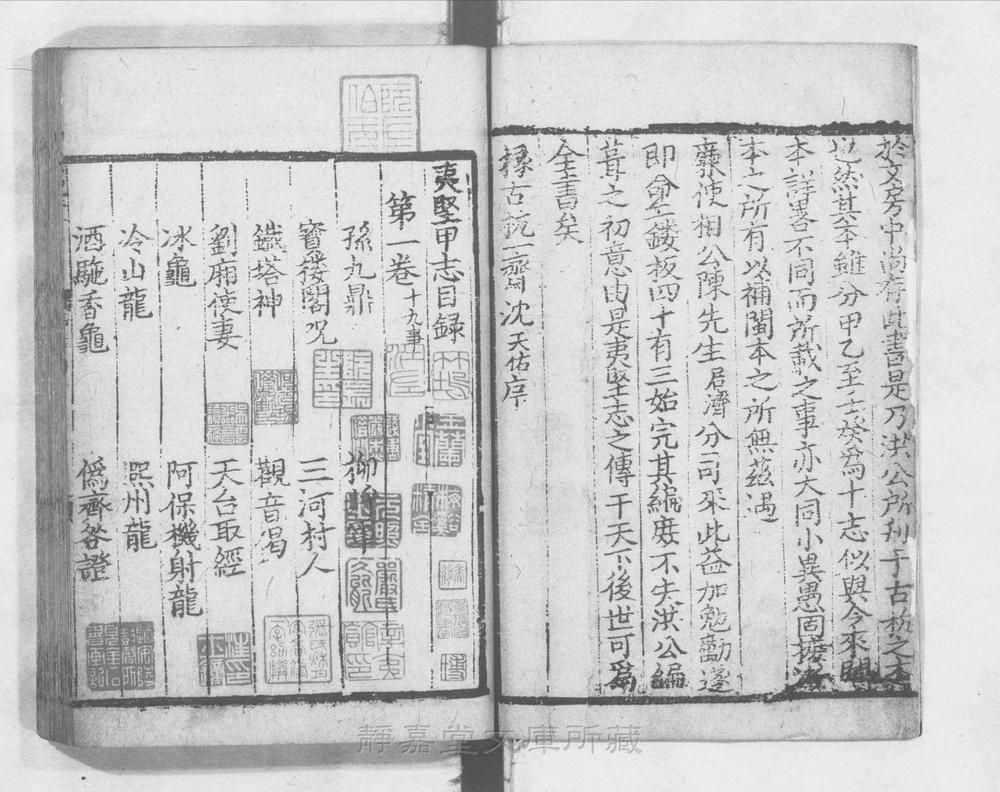 於文房中尚存此書是乃洪公所刊于古杭之本
也然其本雖分甲乙至壬癸為十志似與今來閩
本詳畧不同而所載之事亦大同小異愚固摭
本之所有以補閩本之所無茲遇
廉使相公陳先生居濟分司來此益加勉勵遂
即命工鏤板四十有三始完其編庶不失洪公編
葺之初意由是夷堅志之傳于天下後世可為
全書矣
樣古抗一齋沈天佑序
夷堅甲志目録
第一卷 十九事
孫九鼎 柳將軍
寳樓閣呪 三河村人
鐵塔神 觀音偈
劉廂使妻 天台取經
冰龜 阿保機射龍
冷山龍 熙州龍
酒駞香龜 僞齊咎證
靜嘉堂文庫所藏